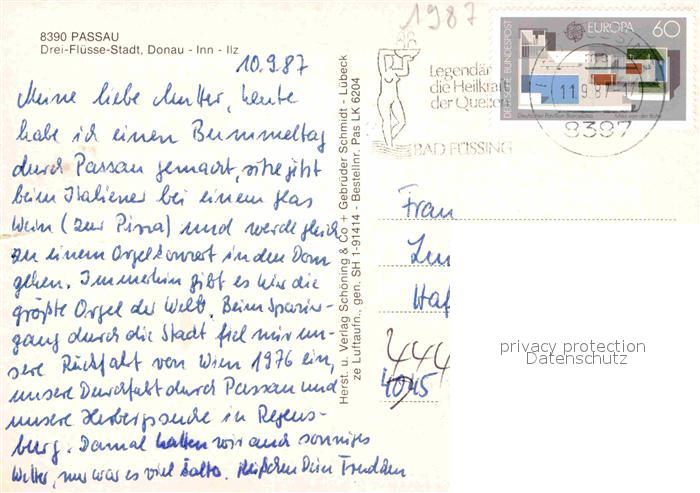 8390 PASSAU
Drei-Flüsse-Stadt, Donau - Inn - Ilz
10.9.87
Meine liebe Mutter, heute
habe ich einen Bummeltag
durch Passau gemacht, sitze jetzt
beim Italiener bei einem Glas
Wein (zur Pizza) und werde gleich
zu einem Orgelkonzert in den Dom
gehen. Immerhin gibt es hier die
größte Orgel der Welt. Beim Spazier-
gang durch die Stadt fiel mir un-
sere Rückfahrt von Wien 1976 ein,
unsere Durchfahrt durch Passau und
unsere Herbergssuche in Regens-
burg. Damal hatten wir auch sonniges
Wetter, nur war es viel kälter. Dein
Herst. u. Verlag Schöning & Co + Gebrüder Schmidt - Lübeck
ze Luftaufn., gen. SH 1-91414 - Bestellnr. Pas LK 6204
1987
Legendär
die Heilkraft
der Quellen
BAD FÜSSING
DEUTSCHE BUNDESPOST
EUROPA
60
Deutscher Pavillon Barcelona
Mies van der Rohe
11.9.87-17
8397
Frau
Len
Haf
444
4045
privacy protection
Datenschutz